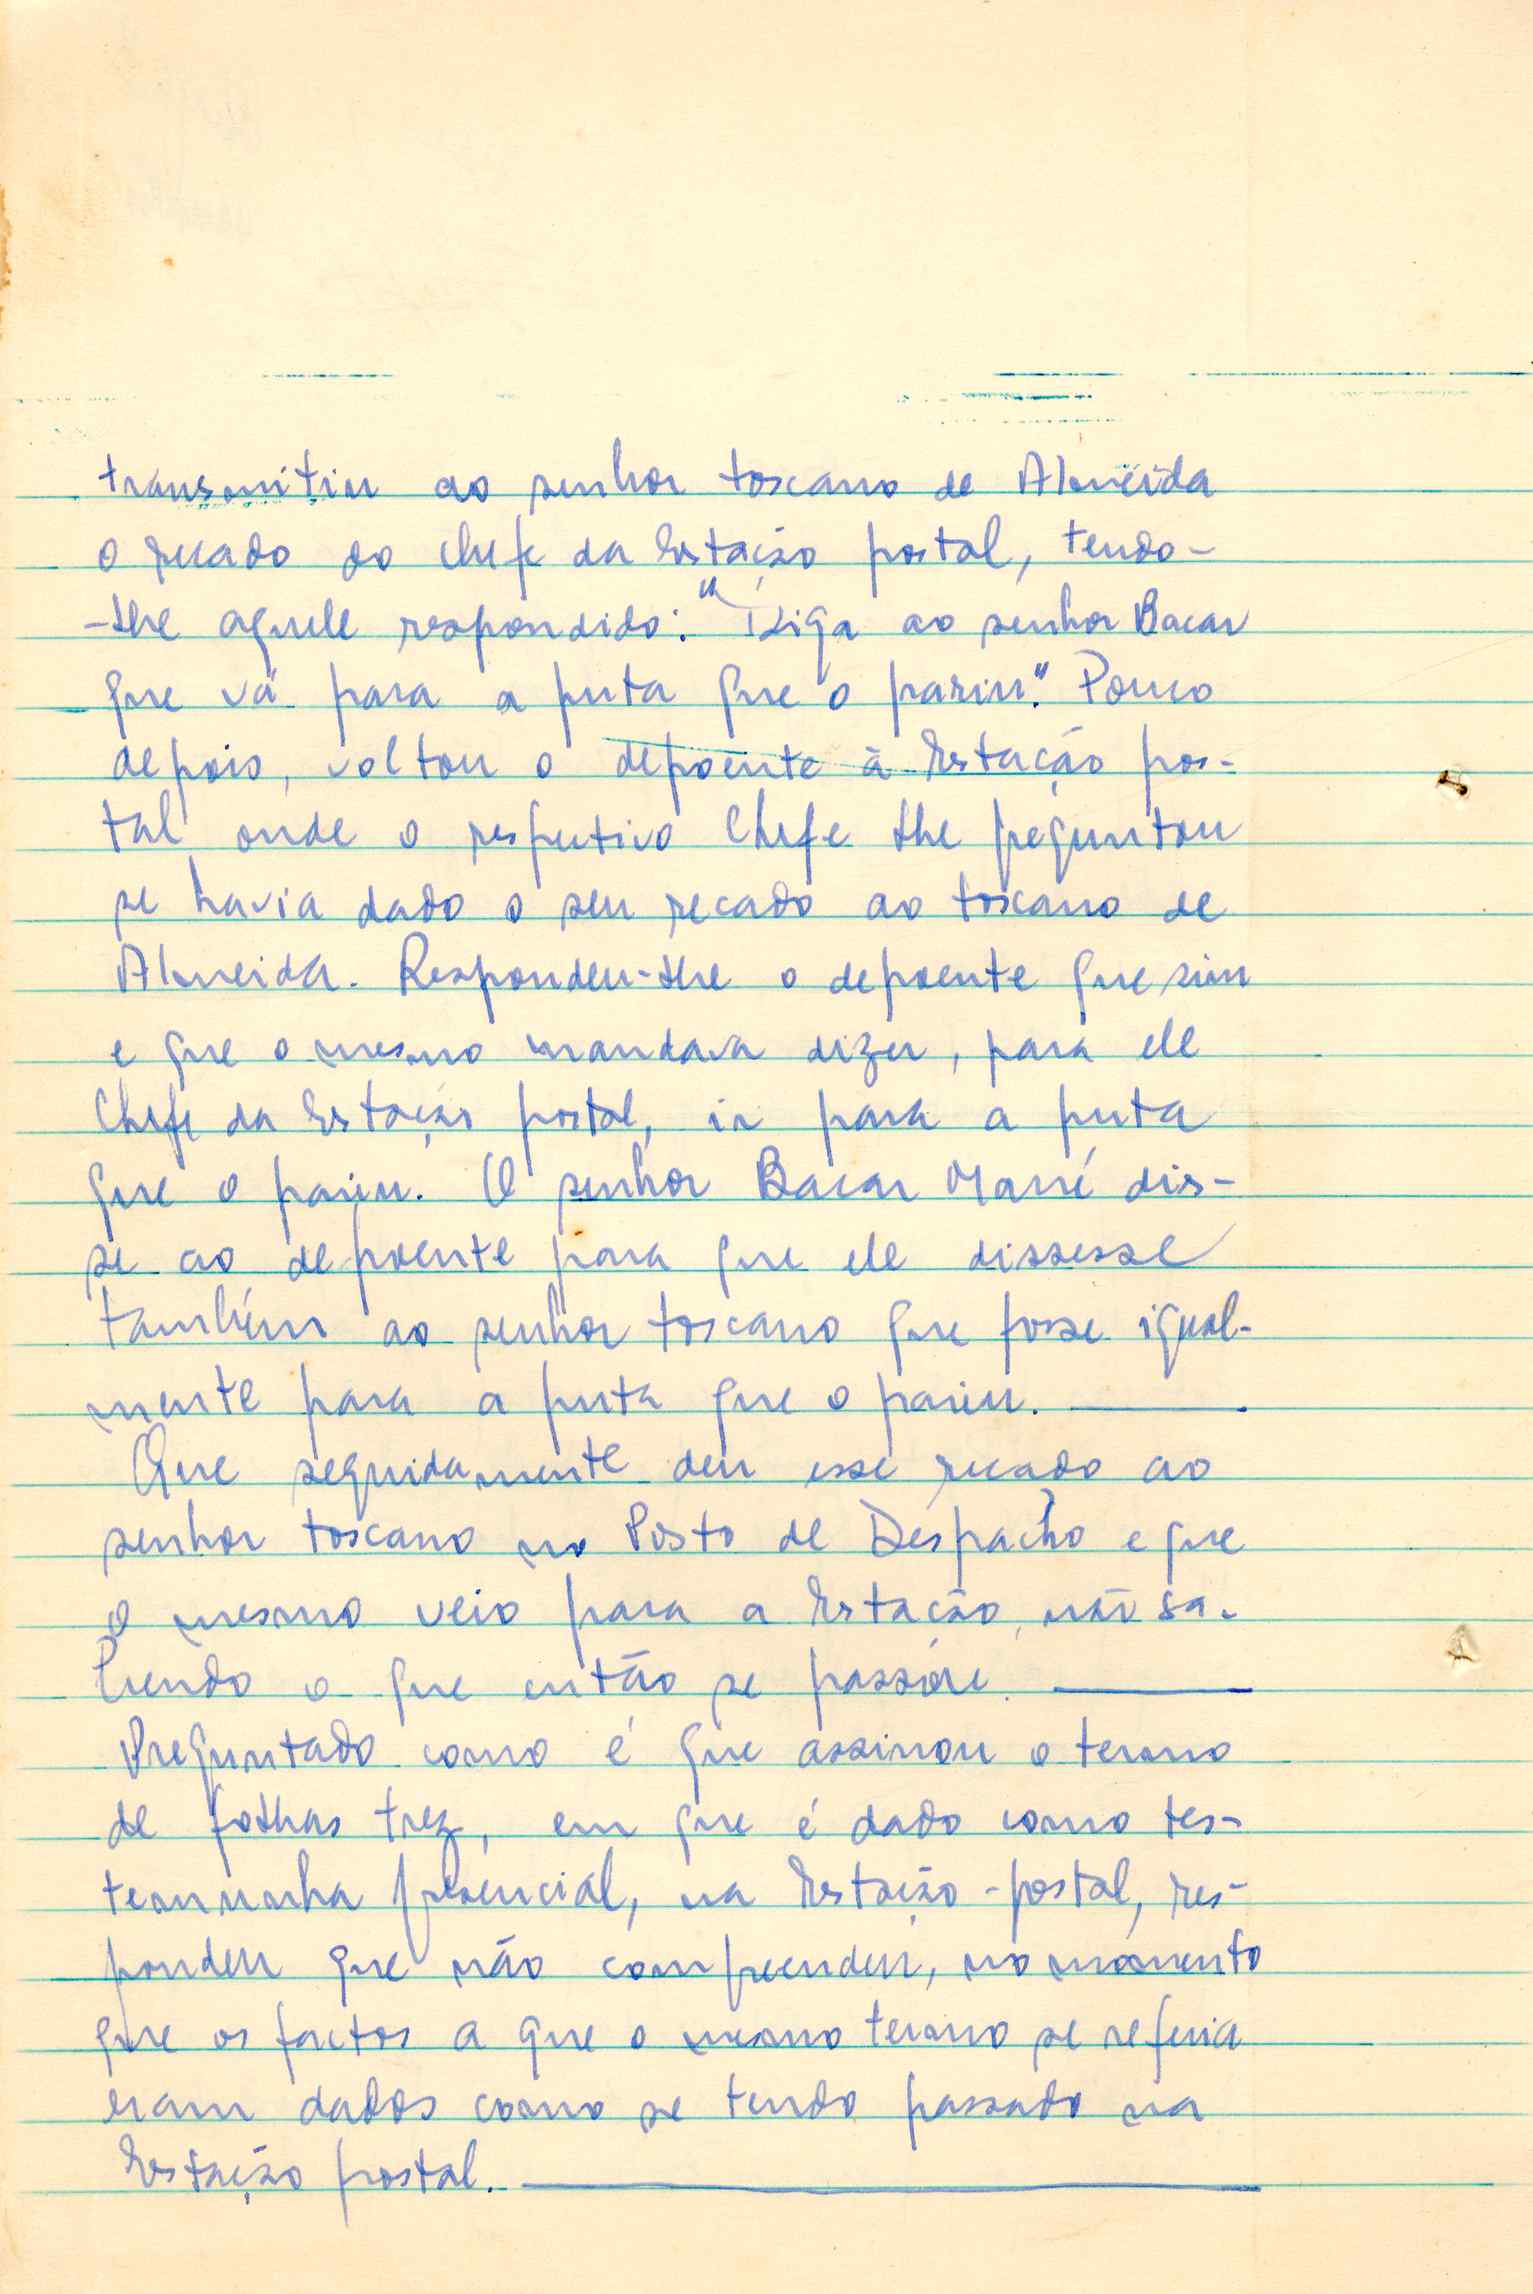 transmitiu ao senhor toscano de Almeida
o recado do chefe da Estação postal, tendo-
-lhe aquele respondido: "Diga ao senhor Bacar
que vá para a puta que o pariu." Pouco
depois, voltou o depoente à Estação pos-
tal onde o respectivo Chefe lhe preguntou
se havia dado o seu recado ao toscano de
Almeida. Respondeu-lhe o depoente que sim
e que o mesmo mandava dizer, para ele
Chefe da Estação postal, ir para a puta
que o pariu. O senhor Bacar Mané dis-
se ao depoente para que ele dissesse
também ao senhor toscano que fosse igual-
mente para a puta que o pariu.
Que seguidamente deu esse recado ao
senhor toscano no Posto de Despacho e que
o mesmo veio para a Estação, não sa-
bendo o que então se passára.
Preguntado como é que assinou o termo
de folhas trez, em que é dado como tes-
temunha presencial, na Estação-postal, res-
pondeu que não compreendeu, no momento
que os factos a que o mesmo termo se referia
eram dados como se tendo passado na
Estação postal.